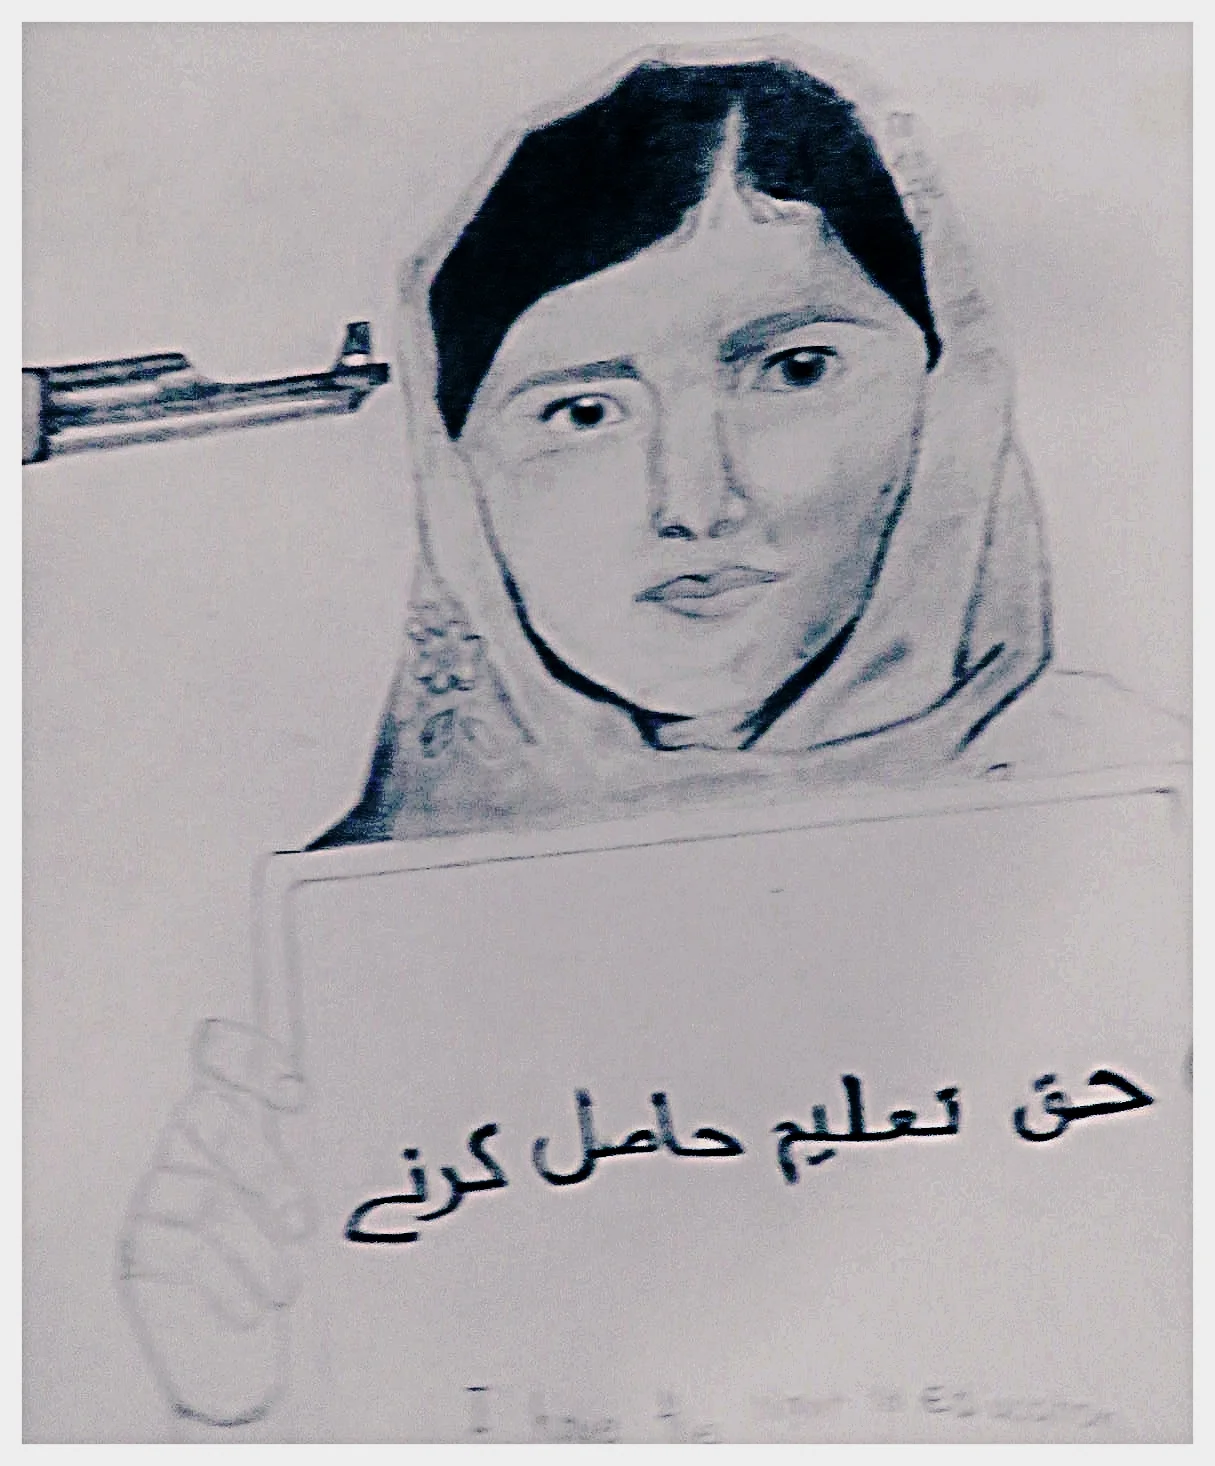 حق تعلیم حاصل کرنے
I have the right to Education